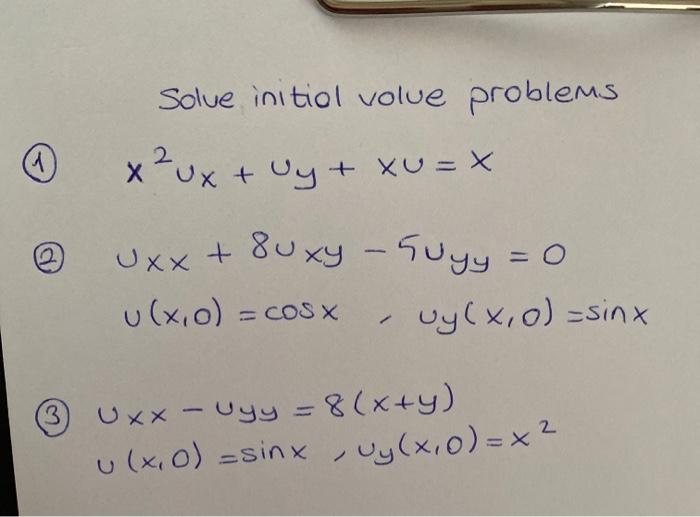 Solve initial value problems
① x²ux + uy + xu = x
② uxx + 8uxy - 5uyy = 0
u(x,0) = cosx , uy(x,0) = sinx
③ uxx - uyy = 8(x+y)
u(x,0) = sinx , uy(x,0) = x²